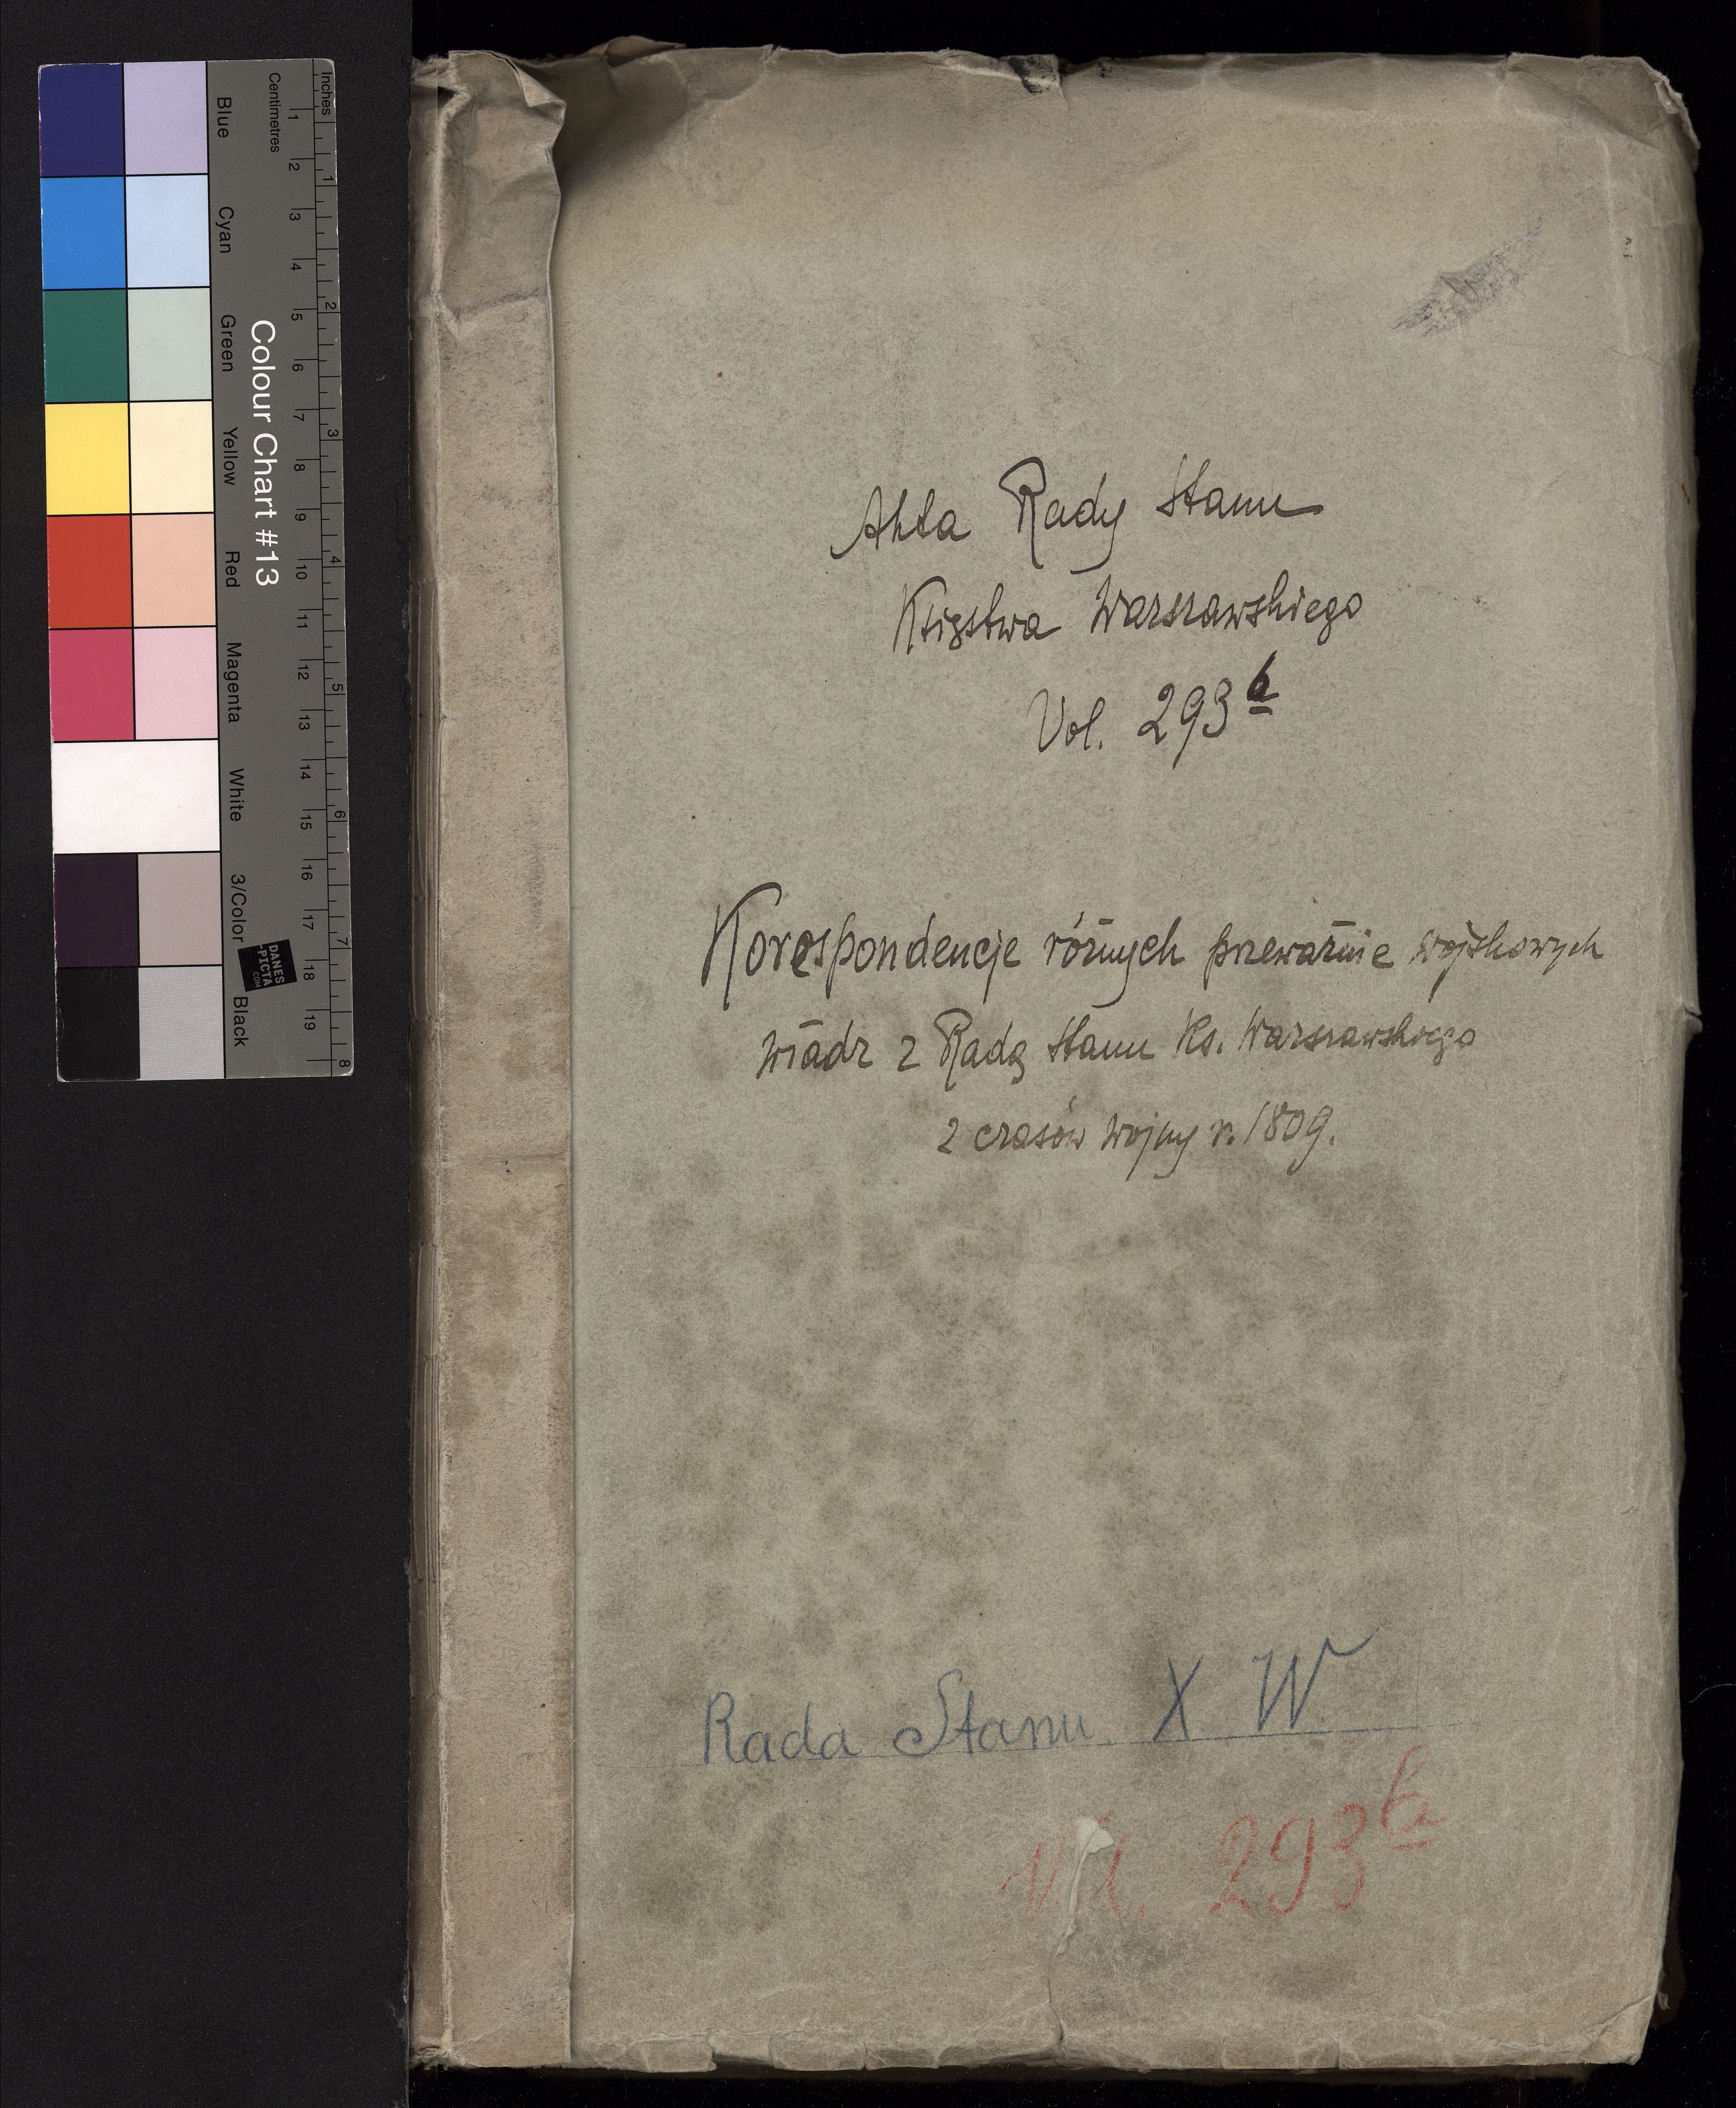 Akta Rady Stanu
Księstwa Warszawskiego
Vol. 293 b
Korespondencje różnych przeważnie wojskowych
władz z Radą Stanu Ks. Warszawskiego
z czasów wojny r. 1809.
Rada Stanu X W
Vol. 293 b
Colour Chart #13
Centimetres
Inches
Blue
Cyan
Green
Yellow
Red
Magenta
White
3/Color
Black
DANES
-PICTA
.COM
1 2 3 4 5 6 7 8 9 10 11 12 13 14 15 16 17 18 19
1 2 3 4 5 6 7 8